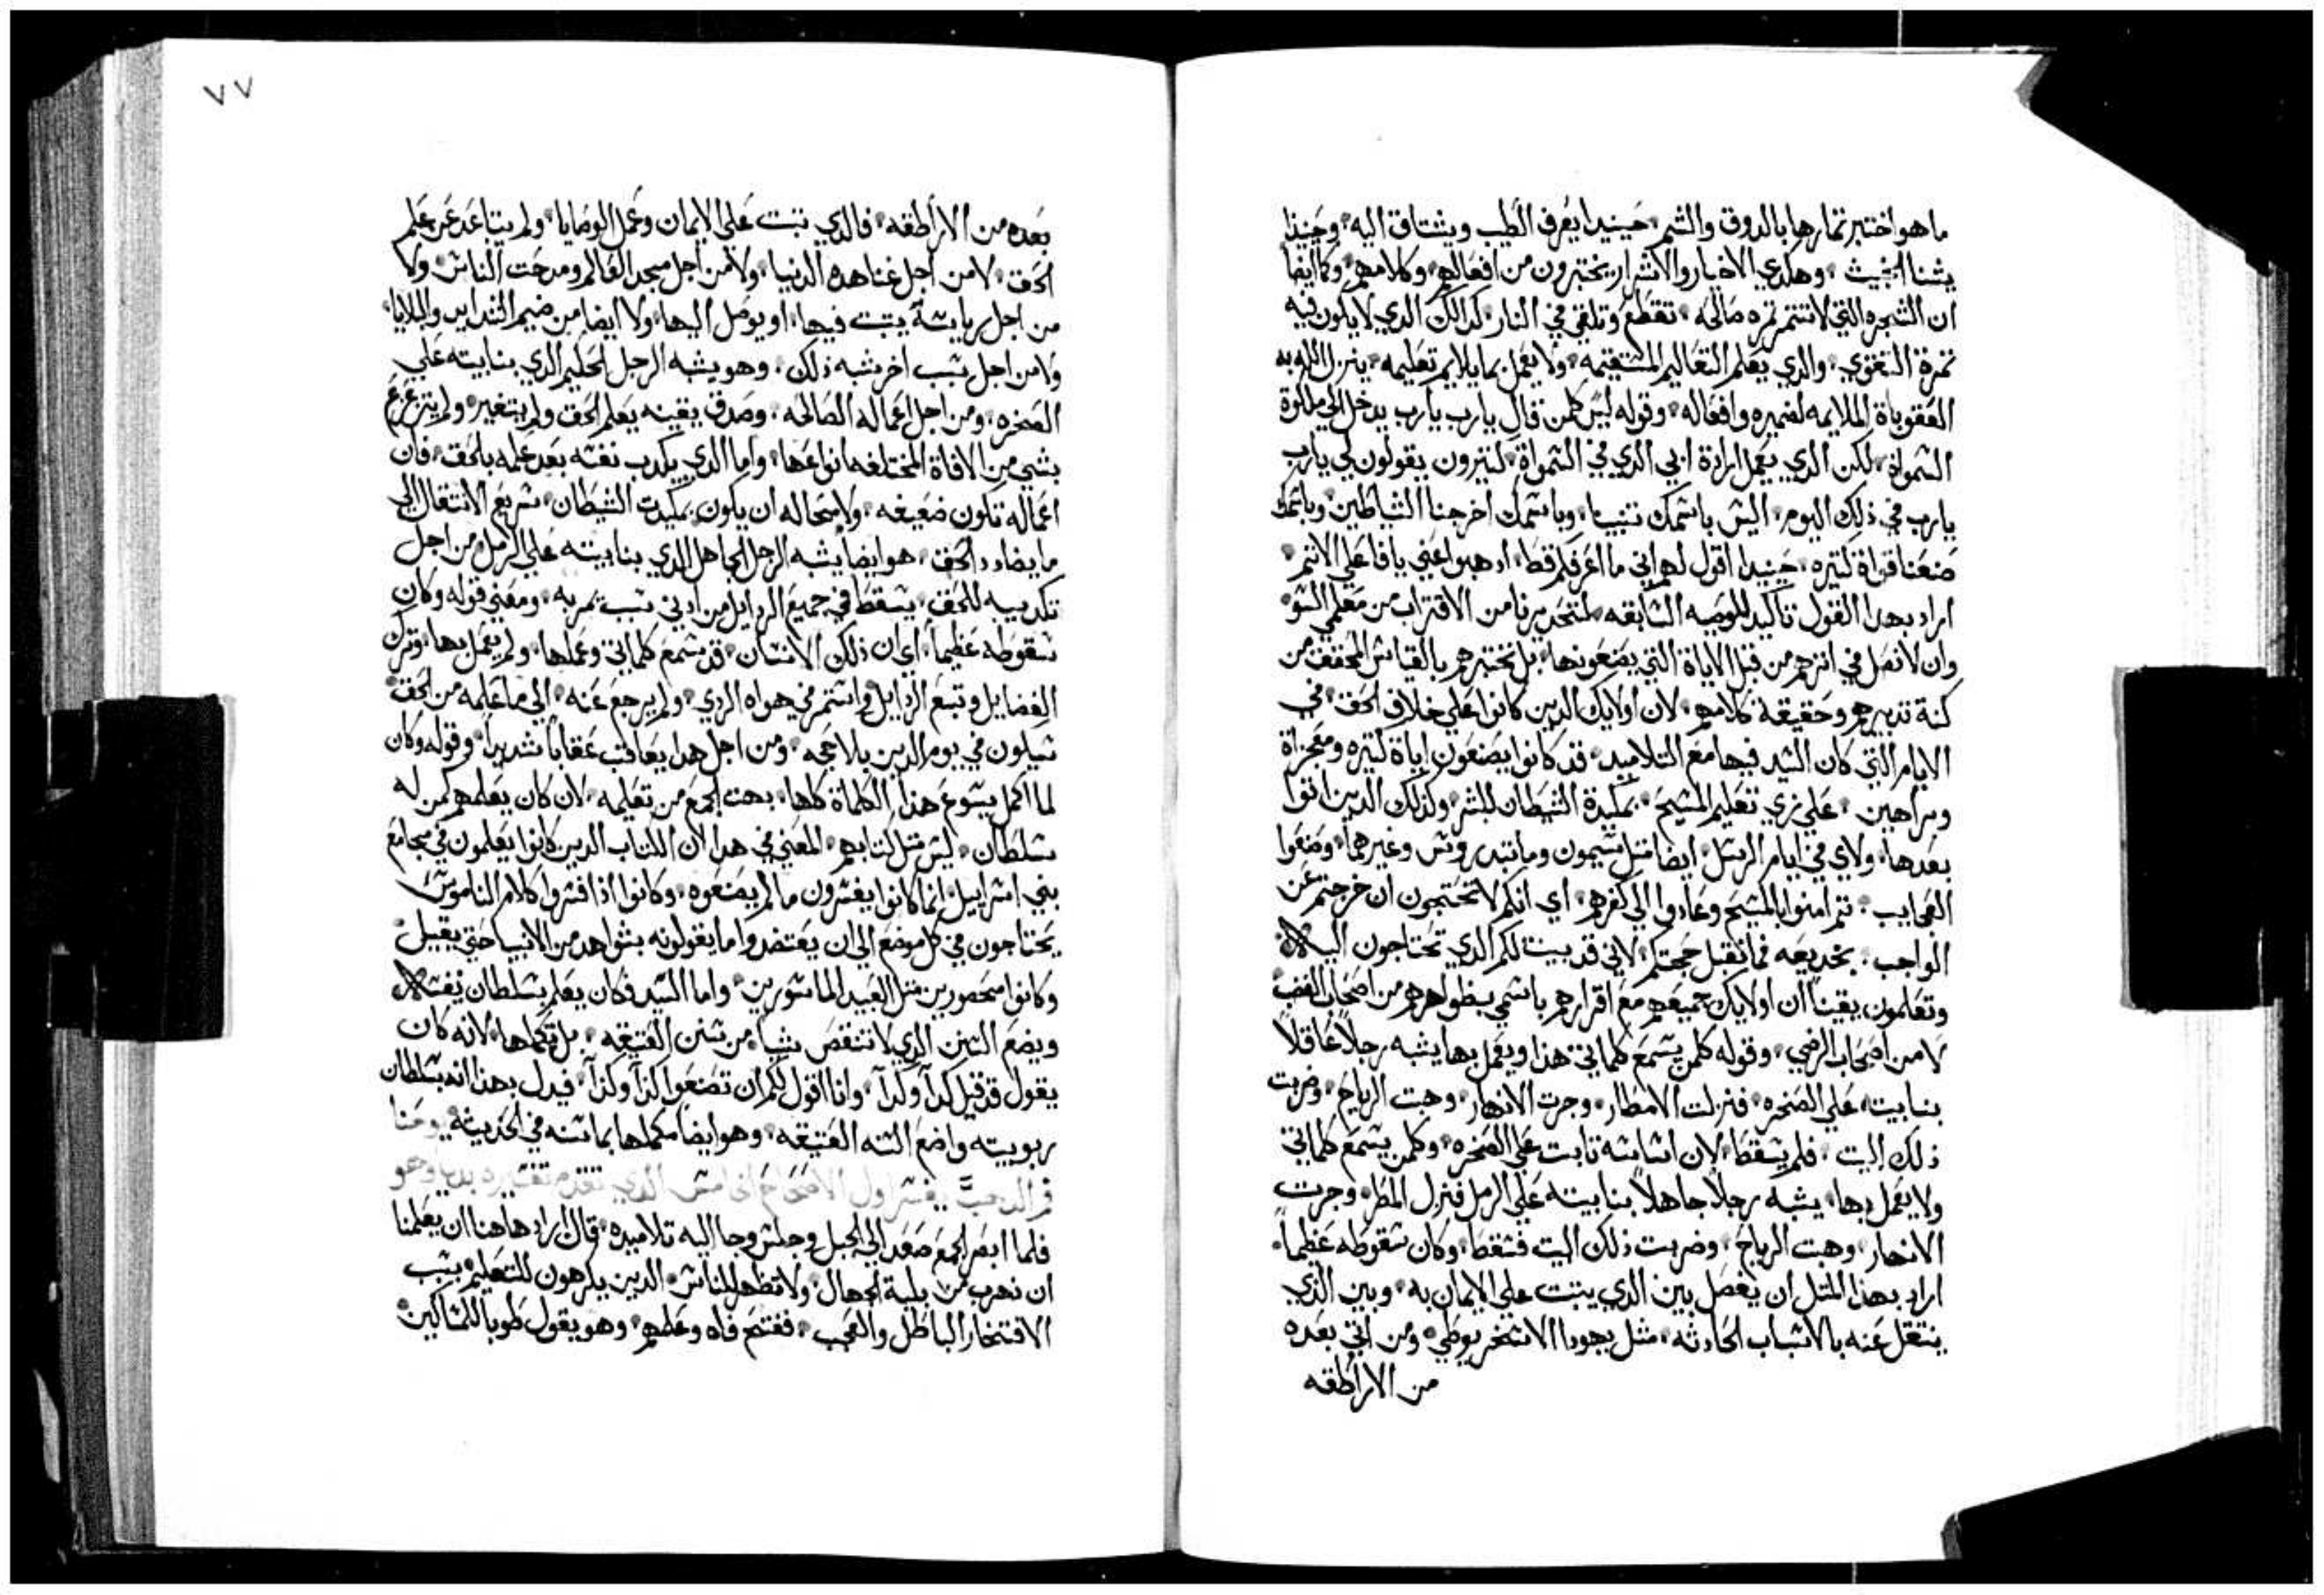 ما هو اختبر تمارها بالدوق والشم حينيدا يعرف الطيب ويشتاق اليه وحينيذا
يشنا الخبيث وهكدي الاخيار والاشرار يختبرون من افعالهم وكلامهم وكما ايضا
ان الشجره التي لا تتمر تمره صالحه تقطع وتلقي في النار كدالك الدي لا يكون فيه
تمرة التقوي والدي يعلم التعاليم المستقيمه ولا يعمل بما يلايم تعليمه ينزل الله به
العقوباة الملايمه لضميره وافعاله وقوله ليس كلمن قال يارب يارب يدخل الي ملكوة
السمواة لكن الدي يعمل ارادة ابي الدي في السمواة كتيرون يقولون لي يارب
يارب في ذلك اليوم اليس باسمك تنبينا وباسمك اخرجنا الشياطين وباسمك
صنعنا قواة كتيره حينيدا اقول لهم اني ما اعرفكم قط ادهبوا عني يا فاعلي الاتم
اراد بهدا القول تاكيد للوصيه السابقه لتحديرنا من الاقتراب من معلمي السو
وان لا نصل في اترهم من قبل الاياة التي يصنعونها بل نختبرهم بالقياس المحقق من
كنة تدبيرهم وحقيقة كلامهم لان اولايك الدين كانوا علي خلاف الحق في
الايام التي كان السيد فيها مع التلاميد قد كانوا يصنعون اياة كتيره ومعجزاة
وبراهين علي زي تعليم المسيح بمكيدة الشيطان للبشر وكذلك الدين اتوا
بعدها ولاي في ايام الرسل ايضا متل سيمون ومانندروس وغيرهما وصنعوا
العجايب تم امنوا بالمسيح وعادوا الي كفرهم اي انكم لا تحتجون ان خرجتم عن
الواجب بخديعه فما تقبل حجتكم لاني قد بينت لكم الدي تحتاجون اليه
وتعلمون يقيناً ان اولايك جميعهم مع اقرارهم باسمي بظواهرهم من اصحاب الغضب
لا من اصحاب الرضي وقوله كلمن يسمع كلماتي هذا ويعمل بها يشبه رجلاً عاقلاً
بنا بيته علي الصخره فنزلت الامطار وجرت الانهار وهبت الرياح وضربت
ذلك البيت فلم يسقط لان اساسه تابت علي الصخره وكلمن يسمع كلماتي
ولا يعمل بها يشبه رجلاً جاهلاً بنا بيته علي الرمل فنزل المطر وجرت
الانهار وهبت الرياح وضربت ذلك البيت فسقط وكان سقوطه عظيماً
اراد بهذا المتل ان يفصل بين الدي يتبت علي الايمان به وبين الذي
ينتقل عنه بالاسباب الحادثه مثل يهودا الاسخريوطي ومن اتي بعده
من الاراطقه
٧٧
بعده من الاراطقه فالدي تبت علي الايمان وعمل الوصايا ولم يتباعد عن علم
الحق لا من اجل غنا هده الدنيا ولا من اجل مجد العالم ومدحت الناس ولا
من اجل رياسة يتبت فيها او يوصل اليها ولا ايضا من ضيم الشدايد والبلايا
ولا من اجل سبب اخر يشبه ذلك وهو يشبه الرجل الحكيم الدي بنا بيته علي
الصخره ومن اجل اعماله الصالحه وصدق يقينه يعلم الحق ولم يتغير ولم يتزعزع
بشي من الافاة المختلفه انواعها واما الدي يكدب نفسه بعد علمه بالحق فان
اعماله تكون ضعيفه ولا استحاله ان يكون بمكيدت الشيطان سريع الانتقال الي
ما يضادد الحق هو ايضا يشبه الرجل الجاهل الدي بنا بيته علي الرمل من اجل
تكديبه للحق يسقط في جميع الردايل من ادني سبب يمر به ومعني قوله وكان
سقوطه عظيماً اي ان ذلك الانسان قد سمع كلماتي وعملها ولم يعمل بها وترك
الفضايل وتبع الردايل واستمر في هواه الردي ولم يرجع عنه الي ما علمه من الحق
سيكون في يوم الدين بلا حجه ومن اجل هدا يعاقب عقاباً شديداً وقوله وكان
لما اكمل يسوع هذا الكلماة كلها بهت الجمع من تعليمه لان كان يعلمهم كمن له
سلطان ليس متل كتابهم المعني في هدا لان الكتاب الدين كانوا يعلمون في مجامع
بني اسراييل انما كانوا يفسرون ما لم يصنعوه وكانوا اذا فسروا كلام الناموس
يحتاجون في كل موضع الي ان يعتضدوا ما يقولونه بشواهد من الانبيا حتي يقبل
وكانوا محصورين متل العبيد الماسورين واما السيد فكان يعلم بسلطان نفسه
ويضع السنن الدي لا تنقص شياً من سنن العتيقه بل تكملها لانه كان
يقول قد قيل كدا وكدا وانا اقول لكم ان تصنعوا كذا وكذا فيدل بهذا انه بسلطان
ربوبيته واضع السنه العتيقه وهو ايضا مكملها بما سنه في الحديثه يوحنا
فم الدهب يفسر اول الاصحاح الخامس الدي تقدم تفسيره بديا وهو
فلما ابصر الجمع صعد الي الجبل وجلس وجا اليه تلاميده قال اراد هاهنا ان يعلمنا
ان نهرب من بلية الجهال ولا تظهر للناس الدين يكرهون للتعليم بسبب
الافتخار الباطل والعجب ففتح فاه وعلمهم وهو يقول طوبا للمساكين